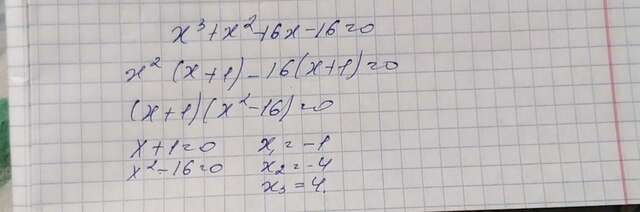 x³+x²-16x-16=0
x²(x+1)-16(x+1)=0
(x+1)(x²-16)=0
x+1=0 x₁=-1
x²-16=0 x₂=-4
x₃=4.